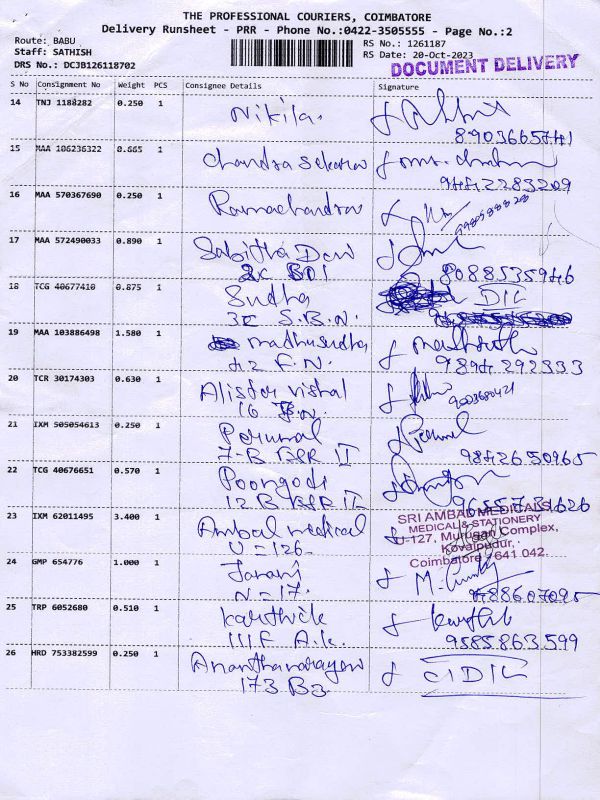 THE PROFESSIONAL COURIERS, COIMBATORE
Delivery Runsheet - PRR - Phone No.:0422-3505555 - Page No.:2
Route: BABU
Staff: SATHISH
DRS No.: DCJB126118702
RS No.: 1261187
RS Date: 20-Oct-2023
DOCUMENT DELIVERY
S No Consignment No Weight PCS Consignee Details Signature
14 TNJ 1188282 0.250 1 Nikila.
8903665741
15 MAA 106236322 0.665 1 Chandra Sekaran
9442283209
16 MAA 570367690 0.250 1 Ramachandran
17 MAA 572490033 0.890 1 Sabitha Devi
2C BO1
8088535946
18 TCG 40677410 0.875 1 Sudha DIL
3C S.B.N.
19 MAA 103886498 1.580 1 madhusudha
42 F.N. 9894292333
20 TCR 30174303 0.630 1 Alister vishal
16 B.N. 9003680421
21 IXM 505054613 0.250 1 Perumal Perumal
7-B BER II 9842650965
22 TCG 40676651 0.570 1 Poongodi
12 B BER II
23 IXM 62011495 3.400 1 Ambal medical
U = 126
SRI AMBAL MEDICALS
MEDICAL & STATIONERY
U-127, Murugan Complex,
Kovaipudur,
Coimbatore - 641 042.
24 GMP 654776 1.000 1
N = 17.
25 TRP 6052680 0.510 1 Karthick
111F A.K. 9585863599
26 HRD 753382599 0.250 1 Ananthanarayan
173 B3